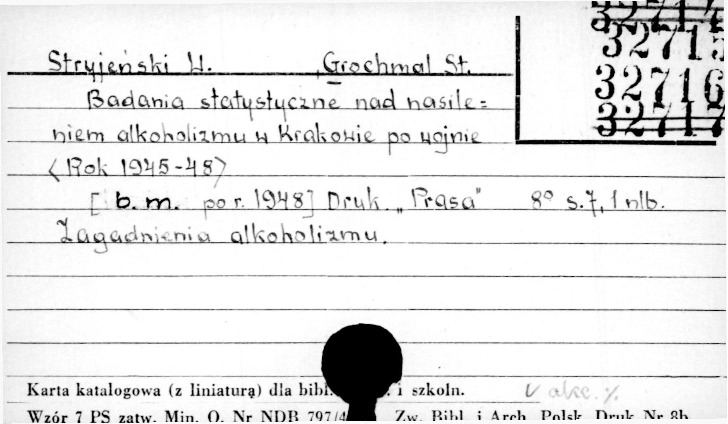 32714
32715
Stryjeński W. , Grochmal St.
32716
Badania statystyczne nad nasile=
32717
niem alkoholizmu w Krakowie po wojnie
<Rok 1945-48>
[b.m. po r. 1948] Druk. „Prasa" 8° s.7, 1 nlb.
Zagadnienia alkoholizmu.
Karta katalogowa (z liniaturą) dla bibl. i szkoln.
Wzór 7 PS zatw. Min. O. Nr NDB 797/4 Zw. Bibl. i Arch. Polsk. Druk Nr 8b